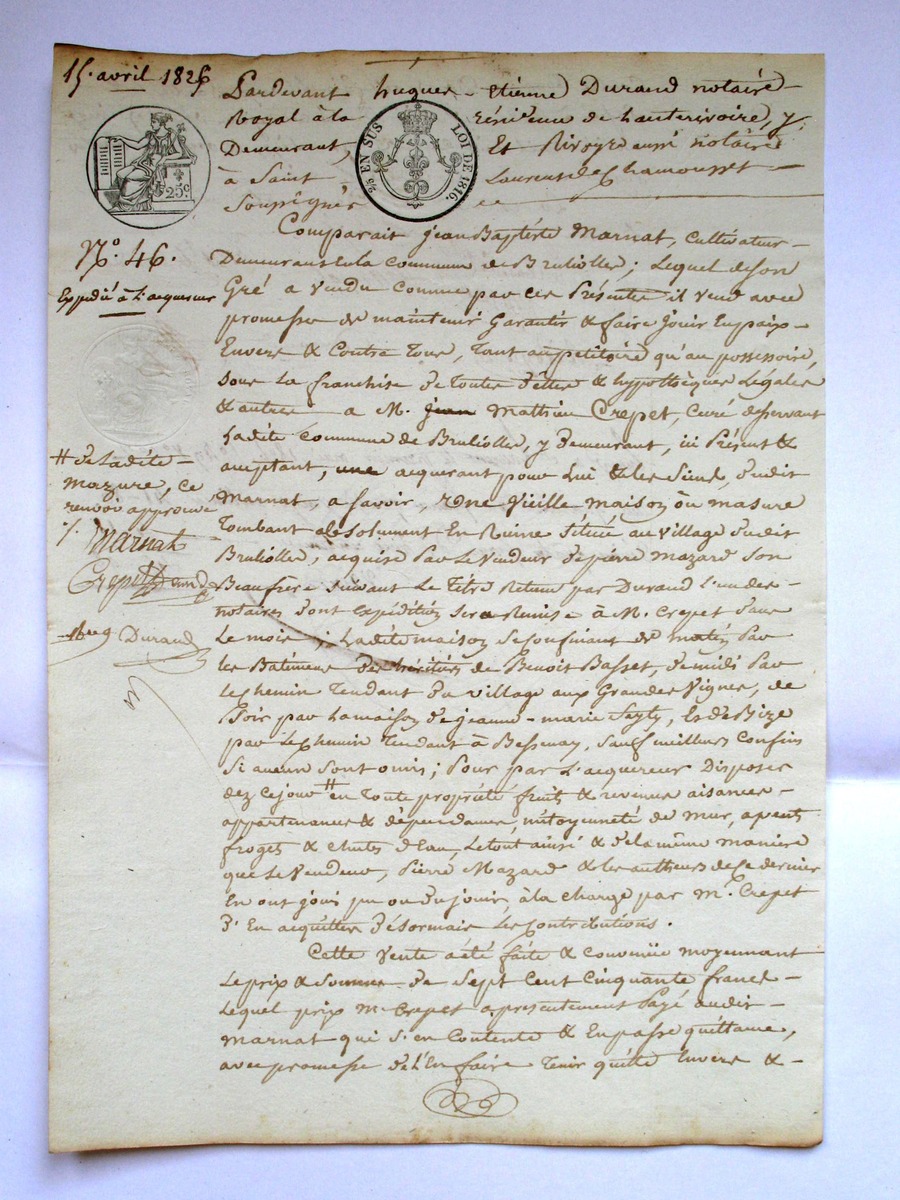 15. avril 1826
Pardevant hugues - etienne Durand notaire -
Royal à la résidence de hauterivoire, y
Demeurant, Et Rivoyre aussi notaire
à Saint Laurent de Chamousset -
Soussignés
25c.
2/10 EN SUS LOI DE 1816.
No. 46.
Expédié à l'acquereur
Comparait jean Baptiste Marnat, Cultivateur -
Demeurant en la commune de Brullioles; Lequel de son
Gré a vendu comme par ces Présentes il vend avec
promesse de maintenir Garantir & faire Jouir En paix -
Envers & Contre Tous, tant au petitoire qu'au possessoire,
sous la franchise de toutes dettes & hypothèques Légales
& autres à M. jean Mathieu Crepet, Curé desservant
Ladite Commune de Brullioles, y Demeurant, ici Présent &
acceptant, acquerant pour Lui & les Siens, dudit
Marnat, a savoir, Une Vieille maison ou masure
Tombant absolument En Ruine Située au village dudit
Brullioles, acquise Par le Vendeur de pierre mazard Son
Beaufrere suivant Le Titre Retenu par Durand L'un des -
notaires dont Expédition Sera Remise à M. Crepet dans
Le mois; Ladite maison se Confinant de matin Par
les Batimens des héritiers de Benoit Basset, de midi Par
le chemin Tendant du village aux Grandes Vignes, de
Soir par la maison de jeanne - marie, Et de Bize
par le Chemin Tendant à Bessenay, Sauf meilleurs Confins
Si aucun Sont omis; Pour par L'acquereur Disposer
dez ce jour # en Toute propriété fruits & revenus aisances -
appartenances & dépendances, mitoyenneté de mur,
& chutes d'Eau, Le tout ainsi & de la même maniere
que Le Vendeur, Pierre Mazard & les autheurs de ce dernier
En ont joui pu ou du jouir, à la charge par M. Crepet
d'En acquitter désormais les Contributions.
# de Ladite -
mazure, ce
renvoi approuvé
Marnat
Crepet
Durand
Cette vente a été faite & convenüe moyennant
Le prix & Somme de Sept Cent Cinquante francs -
Lequel prix M. Crepet a presentement Payé audit -
Marnat qui S'en Contente & En passe quittance,
avec promesse de L'En faire Tenir quitte Envers & -